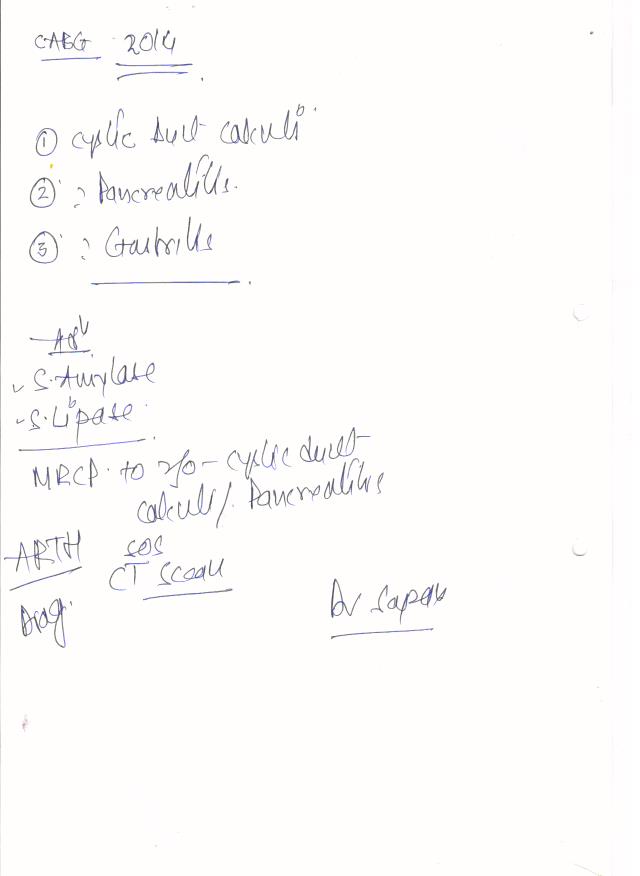 CABG 2014
① cystic duct calculi
② ? Pancreatitis.
③ ? Gastritis
Adv
S. Amylase
S. Lipase
MRCP to r/o - cystic duct
calculi / Pancreatitis
ARTH SOS
CT Scan
Diag. Dr Sapan